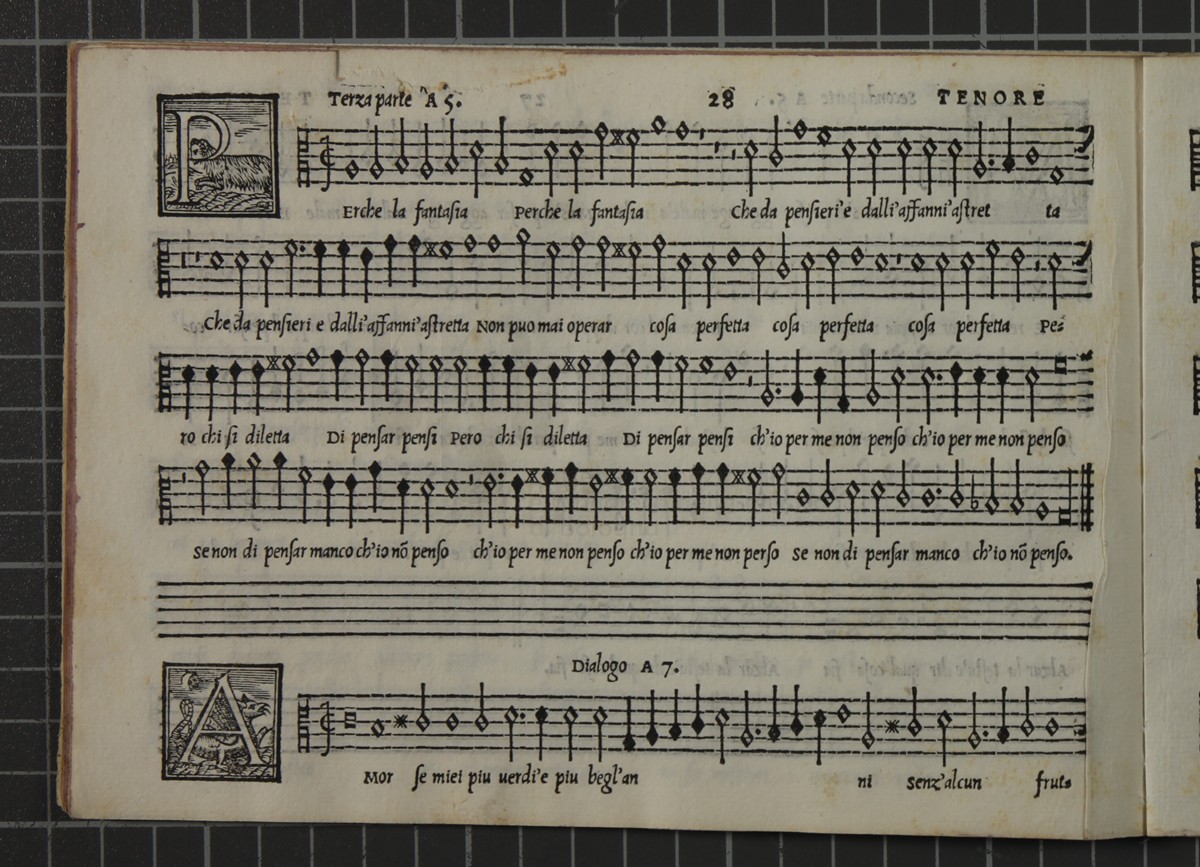 Terza parte A 5. 28 TENORE
PErche la fantasia Perche la fantasia Che da pensieri'e dalli'affanni'astret ta
Che da pensieri e dalli'affanni'astretta Non puo mai operar cosa perfetta cosa perfetta cosa perfetta Pe=
ro chi si diletta Di pensar pensi Pero chi si diletta Di pensar pensi ch'io per me non penso ch'io per me non penso
Se non di pensar manco ch'io nõ penso ch'io per me non penso ch'io per me non perso Se non di pensar manco ch'io nõ penso.
Dialogo A 7.
AMor se miei piu uerdi'e piu begl'an ni Senz'alcun frut=